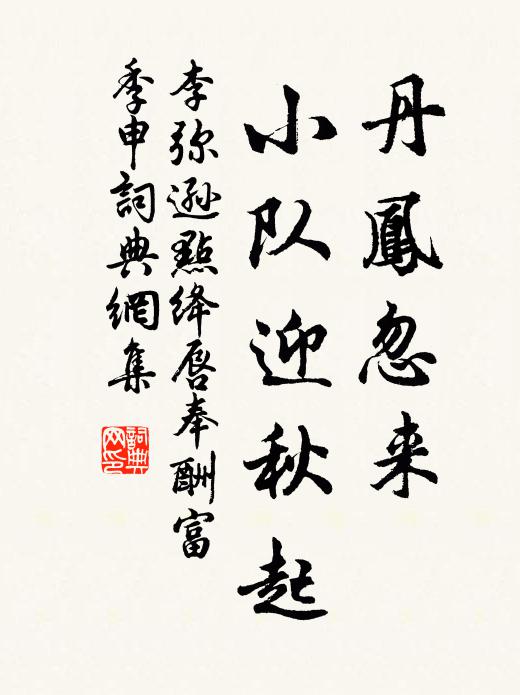 丹鳳忽来
小队迎秋起
李弥遜點絳唇奉酬富
季申詞典網集
詞典网印